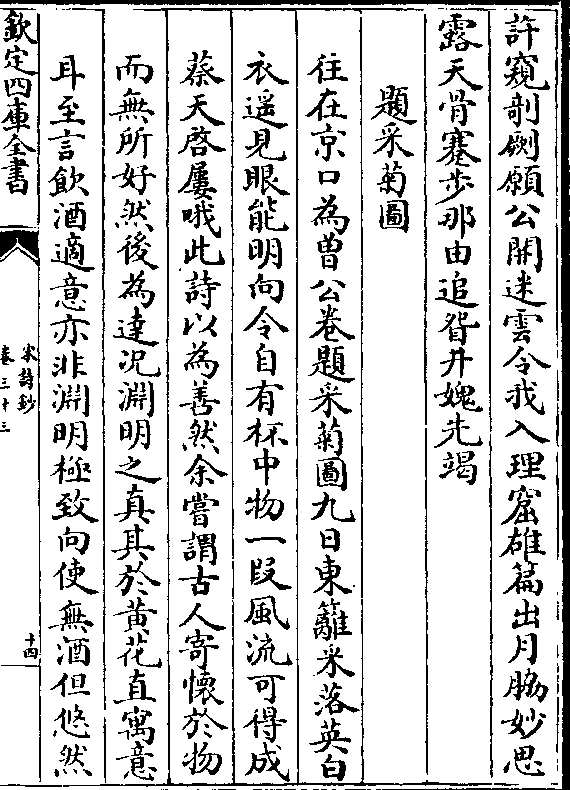 許窺剞劂願公開迷雲令我入理窟雄篇出月脇妙思
露天骨蹇步那由追眢井媿先竭
題采菊圖
往在京口為曽公卷題采菊圖九日東籬采落英白
衣遥見眼能明向令自有杯中物一段風流可得成
蔡天啓屢哦此詩以為善然余嘗謂古人寄懷於物
而無所好然後為達况淵明之真其於黄花直寓意
耳至言飲酒適意亦非淵明極致向使無酒但悠然
欽定四庫全書
宋詩鈔
卷三十三
十四